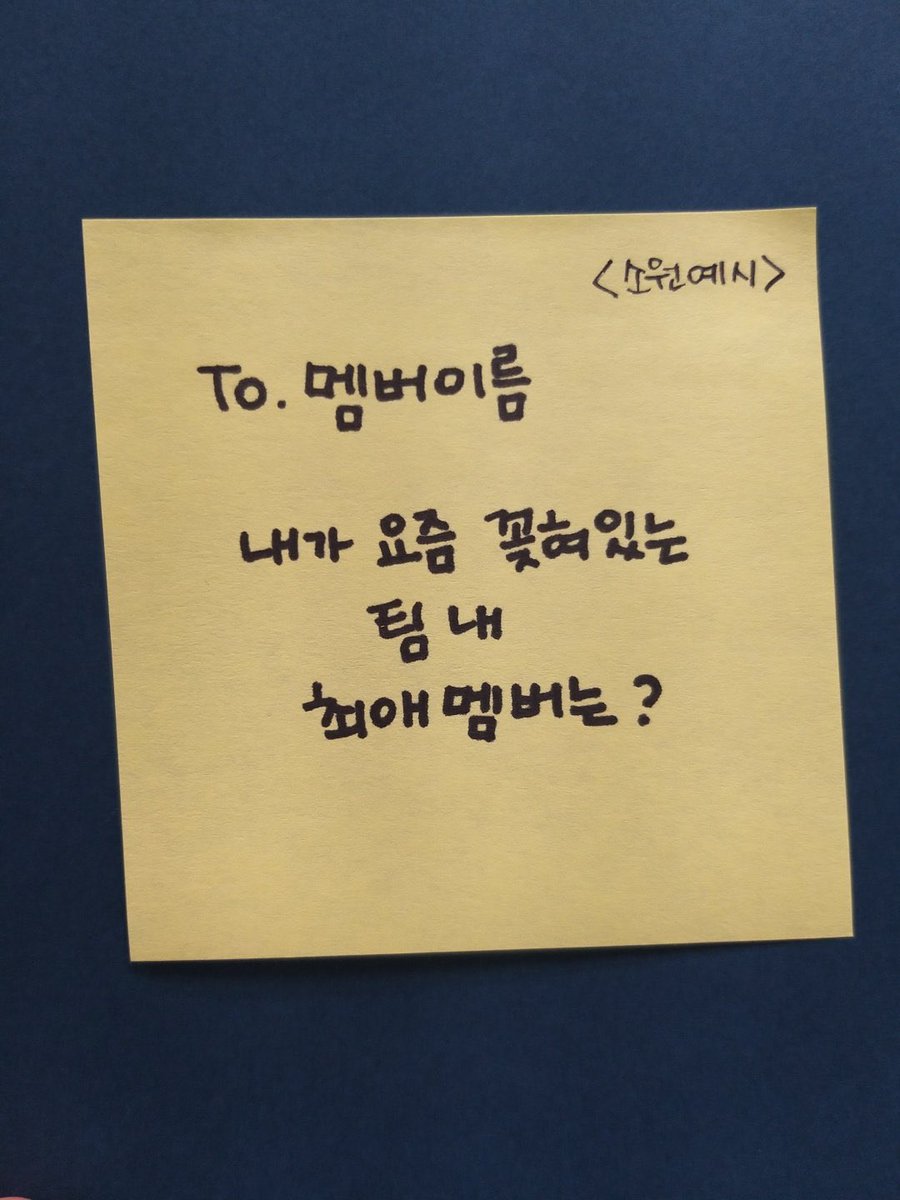 <소원예시>
To. 멤버이름
내가 요즘 꽂혀있는
팀 내
최애 멤버는?